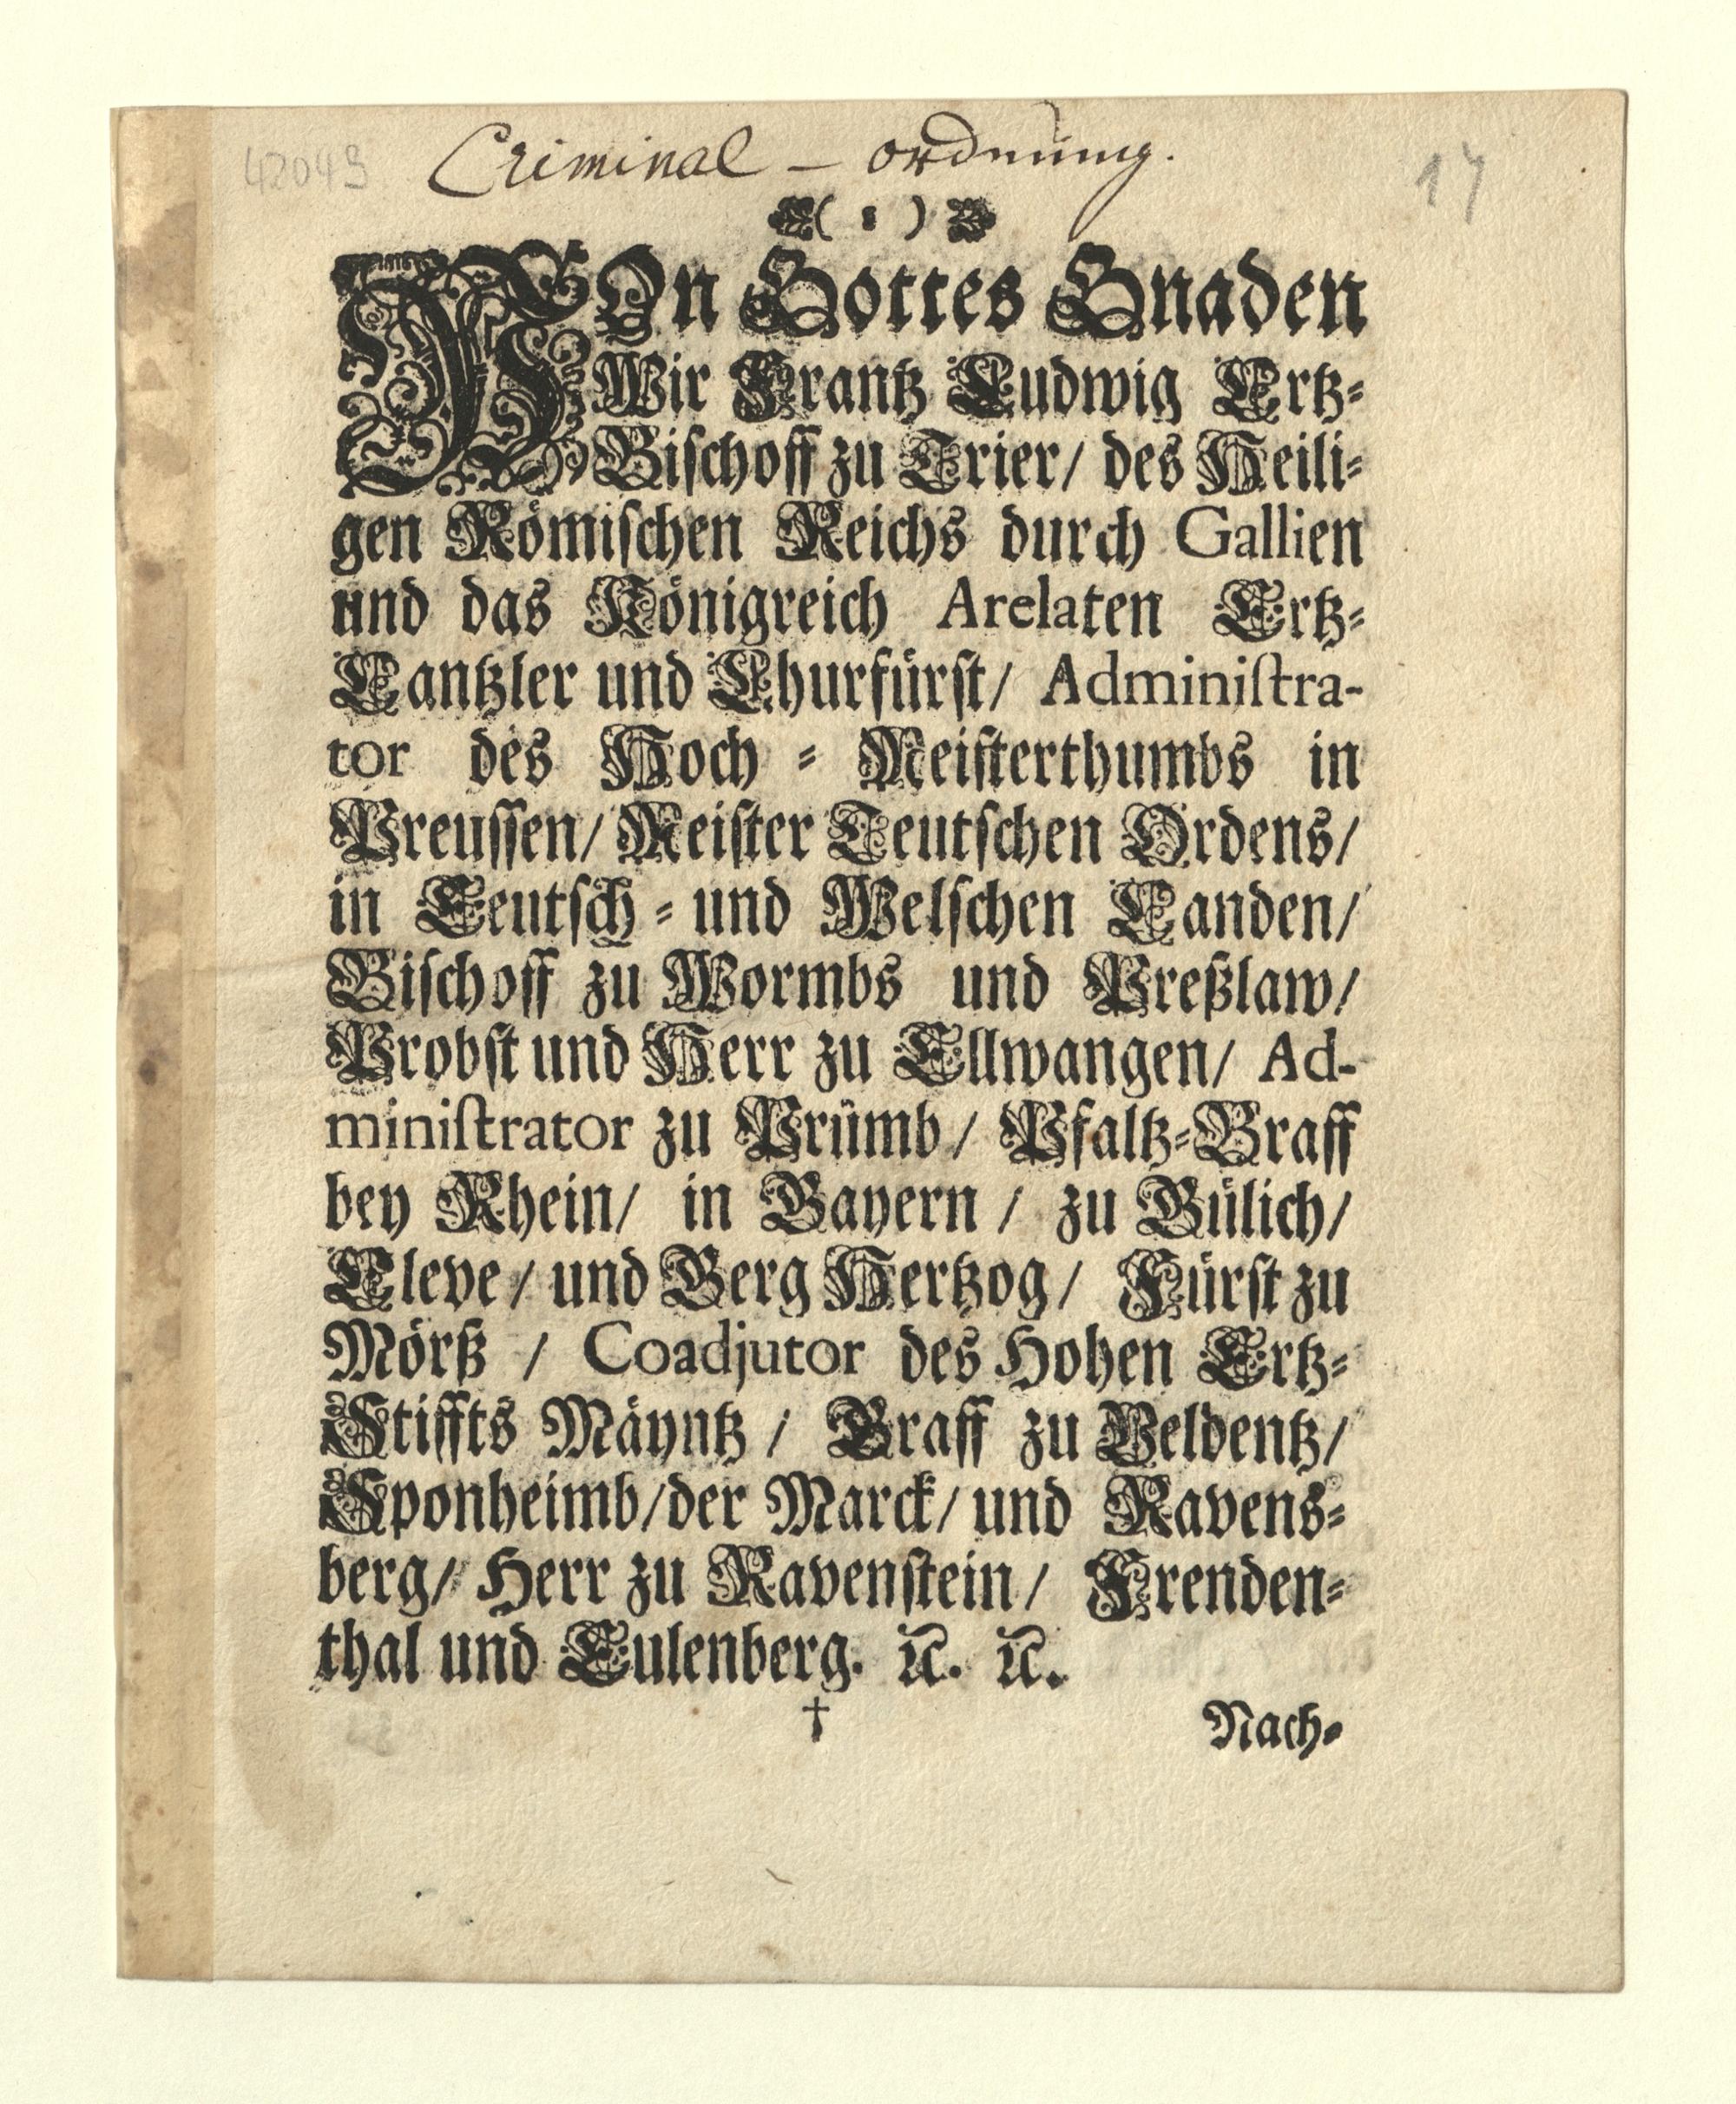 42049
Criminal - ordnung.
17
( : )
VOn Gottes Gnaden
Wir Frantz Ludwig Ertz-
Bischoff zu Trier/ des Heili-
gen Römischen Reichs durch Gallien
und das Königreich Arelaten Ertz-
Cantzler und Churfürst/ Administra-
tor des Hoch - Meisterthumbs in
Preussen/ Meister Teutschen Ordens/
in Teutsch - und Welschen Landen/
Bischoff zu Wormbs und Preßlaw/
Probst und Herr zu Ellwangen/ Ad-
ministrator zu Prümb / Pfaltz-Graff
bey Rhein/ in Bayern / zu Gülich/
Cleve / und Berg Hertzog/ Fürst zu
Mörß / Coadjutor des Hohen Ertz-
Stiffts Mäyntz / Graff zu Veldentz/
Sponheimb/der Marck/ und Ravens-
berg/ Herr zu Ravenstein/ Frenden-
thal und Eulenberg. ꝛc. ꝛc.
†
Nach-